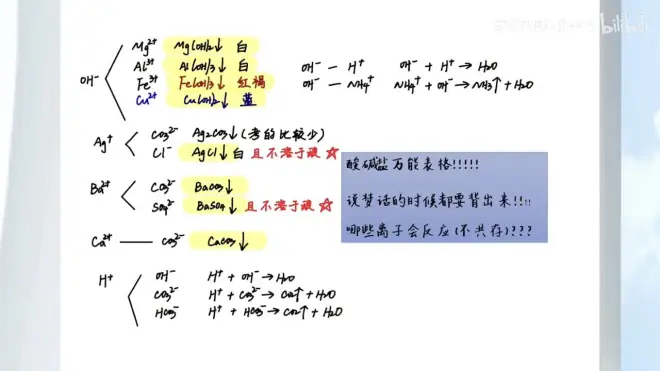 Mg²⁺ Mg(OH)₂↓ 白
Al³⁺ Al(OH)₃↓ 白
OH⁻ Fe³⁺ Fe(OH)₃↓ 红褐
Cu²⁺ Cu(OH)₂↓ 蓝
OH⁻ — H⁺ OH⁻ + H⁺ → H₂O
OH⁻ — NH₄⁺ NH₄⁺ + OH⁻ → NH₃↑ + H₂O
Ag⁺ CO₃²⁻ Ag₂CO₃↓ (考的比较少)
Cl⁻ AgCl↓ 白 且不溶于酸 ☆
Ba²⁺ CO₃²⁻ BaCO₃↓
SO₄²⁻ BaSO₄↓ 且不溶于酸 ☆
Ca²⁺ — CO₃²⁻ CaCO₃↓
H⁺ OH⁻ H⁺ + OH⁻ → H₂O
CO₃²⁻ H⁺ + CO₃²⁻ → CO₂↑ + H₂O
HCO₃⁻ H⁺ + HCO₃⁻ → CO₂↑ + H₂O
酸碱盐万能表格!!!!!
说梦话的时候都要背出来!!!
哪些离子会反应(不共存)???
bilibili